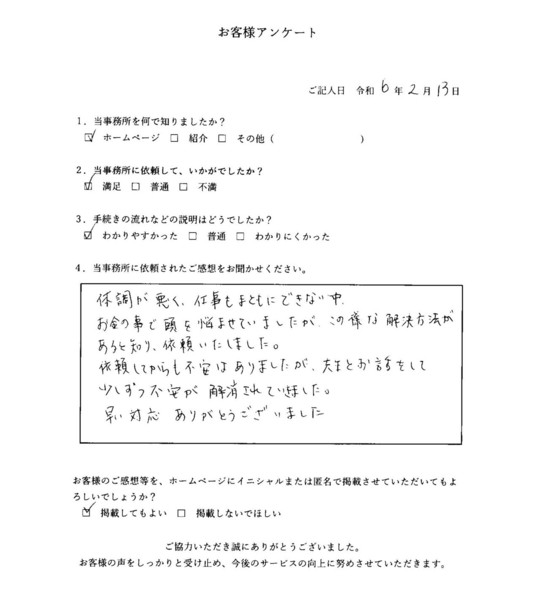 お客様アンケート
ご記入日 令和 6 年 2 月 13 日
1．当事務所を何で知りましたか？
☑ ホームページ □ 紹介 □ その他（ ）
2．当事務所に依頼して、いかがでしたか？
☑ 満足 □ 普通 □ 不満
3．手続きの流れなどの説明はどうでしたか？
☑ わかりやすかった □ 普通 □ わかりにくかった
4．当事務所に依頼されたご感想をお聞かせください。
体調が悪く、仕事もまともにできない中、
お金の事で頭を悩ませていましたが、この様な解決方法が
あると知り、依頼いたしました。
依頼してからも不安はありましたが、先生とお話をして
少しずつ不安が解消されていきました。
早い対応 ありがとうございました
お客様のご感想等を、ホームページにイニシャルまたは匿名で掲載させていただいてもよ
ろしいでしょうか？
☑ 掲載してもよい □ 掲載しないでほしい
ご協力いただき誠にありがとうございました。
お客様の声をしっかりと受け止め、今後のサービスの向上に努めさせていただきます。